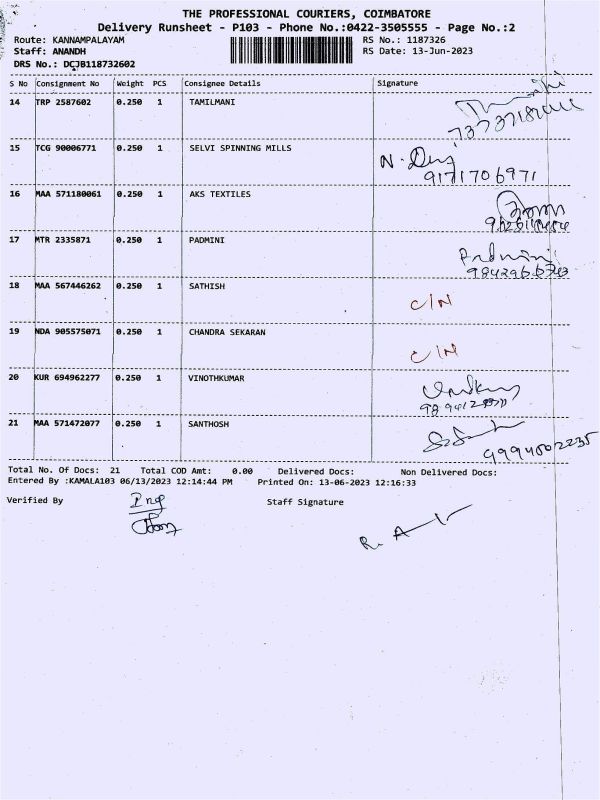 THE PROFESSIONAL COURIERS, COIMBATORE
Delivery Runsheet - P103 - Phone No.:0422-3505555 - Page No.:2
Route: KANNAMPALAYAM RS No.: 1187326
Staff: ANANDH RS Date: 13-Jun-2023
DRS No.: DCJB118732602
S No Consignment No Weight PCS Consignee Details Signature
14 TRP 2587602 0.250 1 TAMILMANI
15 TCG 90006771 0.250 1 SELVI SPINNING MILLS
9171706971
16 MAA 571180061 0.250 1 AKS TEXTILES
17 MTR 2335871 0.250 1 PADMINI Padmini
18 MAA 567446262 0.250 1 SATHISH
C/N
19 NDA 905575071 0.250 1 CHANDRA SEKARAN
C/N
20 KUR 694962277 0.250 1 VINOTHKUMAR
21 MAA 571472077 0.250 1 SANTHOSH
9994502235
Total No. Of Docs: 21 Total COD Amt: 0.00 Delivered Docs: Non Delivered Docs:
Entered By :KAMALA103 06/13/2023 12:14:44 PM Printed On: 13-06-2023 12:16:33
Verified By Staff Signature